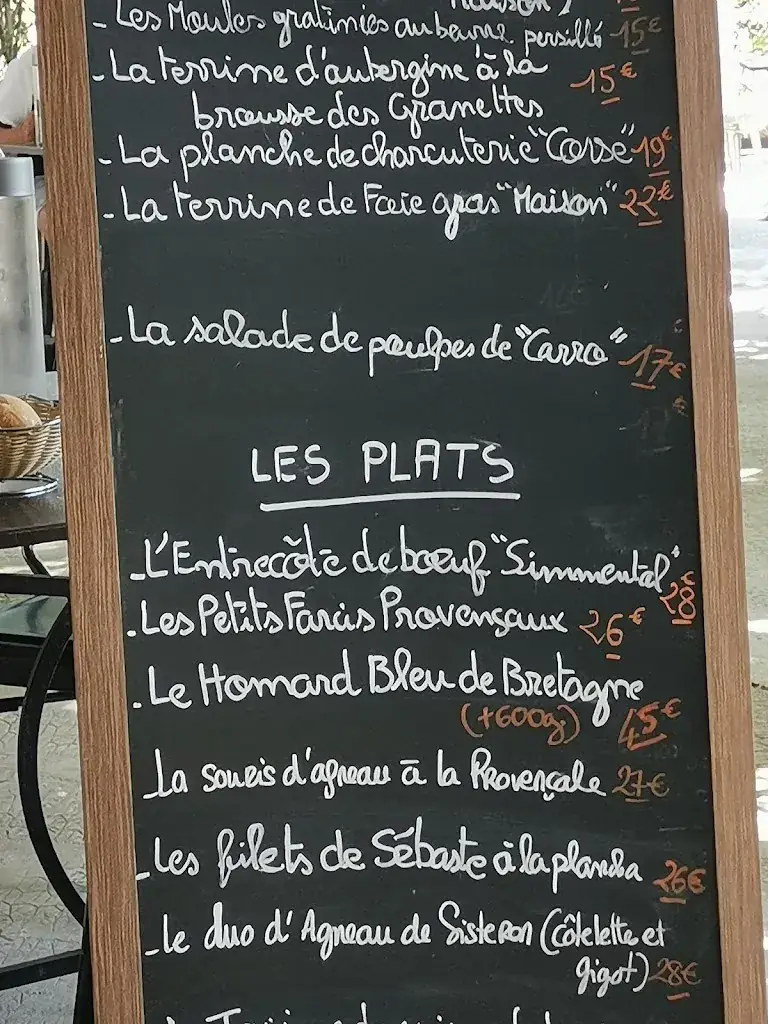 Maison")
- Les Moules gratinées au beurre persillé 15€
- La terrine d'aubergine à la 15€
brousse des Granettes
- La planche de charcuterie "Corse" 19€
- La terrine de Foie gras "Maison" 22€
- La salade de poulpes de "Carro" 17€
LES PLATS
- L'Entrecôte de bœuf "Simmental" 28€
. Les Petits Farcis Provençaux 26€
. Le Homard Bleu de Bretagne
(+600g) 45€
- La souris d'agneau à la Provençale 27€
- Les filets de Sébaste à la plancha 26€
- le duo d'Agneau de Sisteron (côtelette et
gigot) 28€